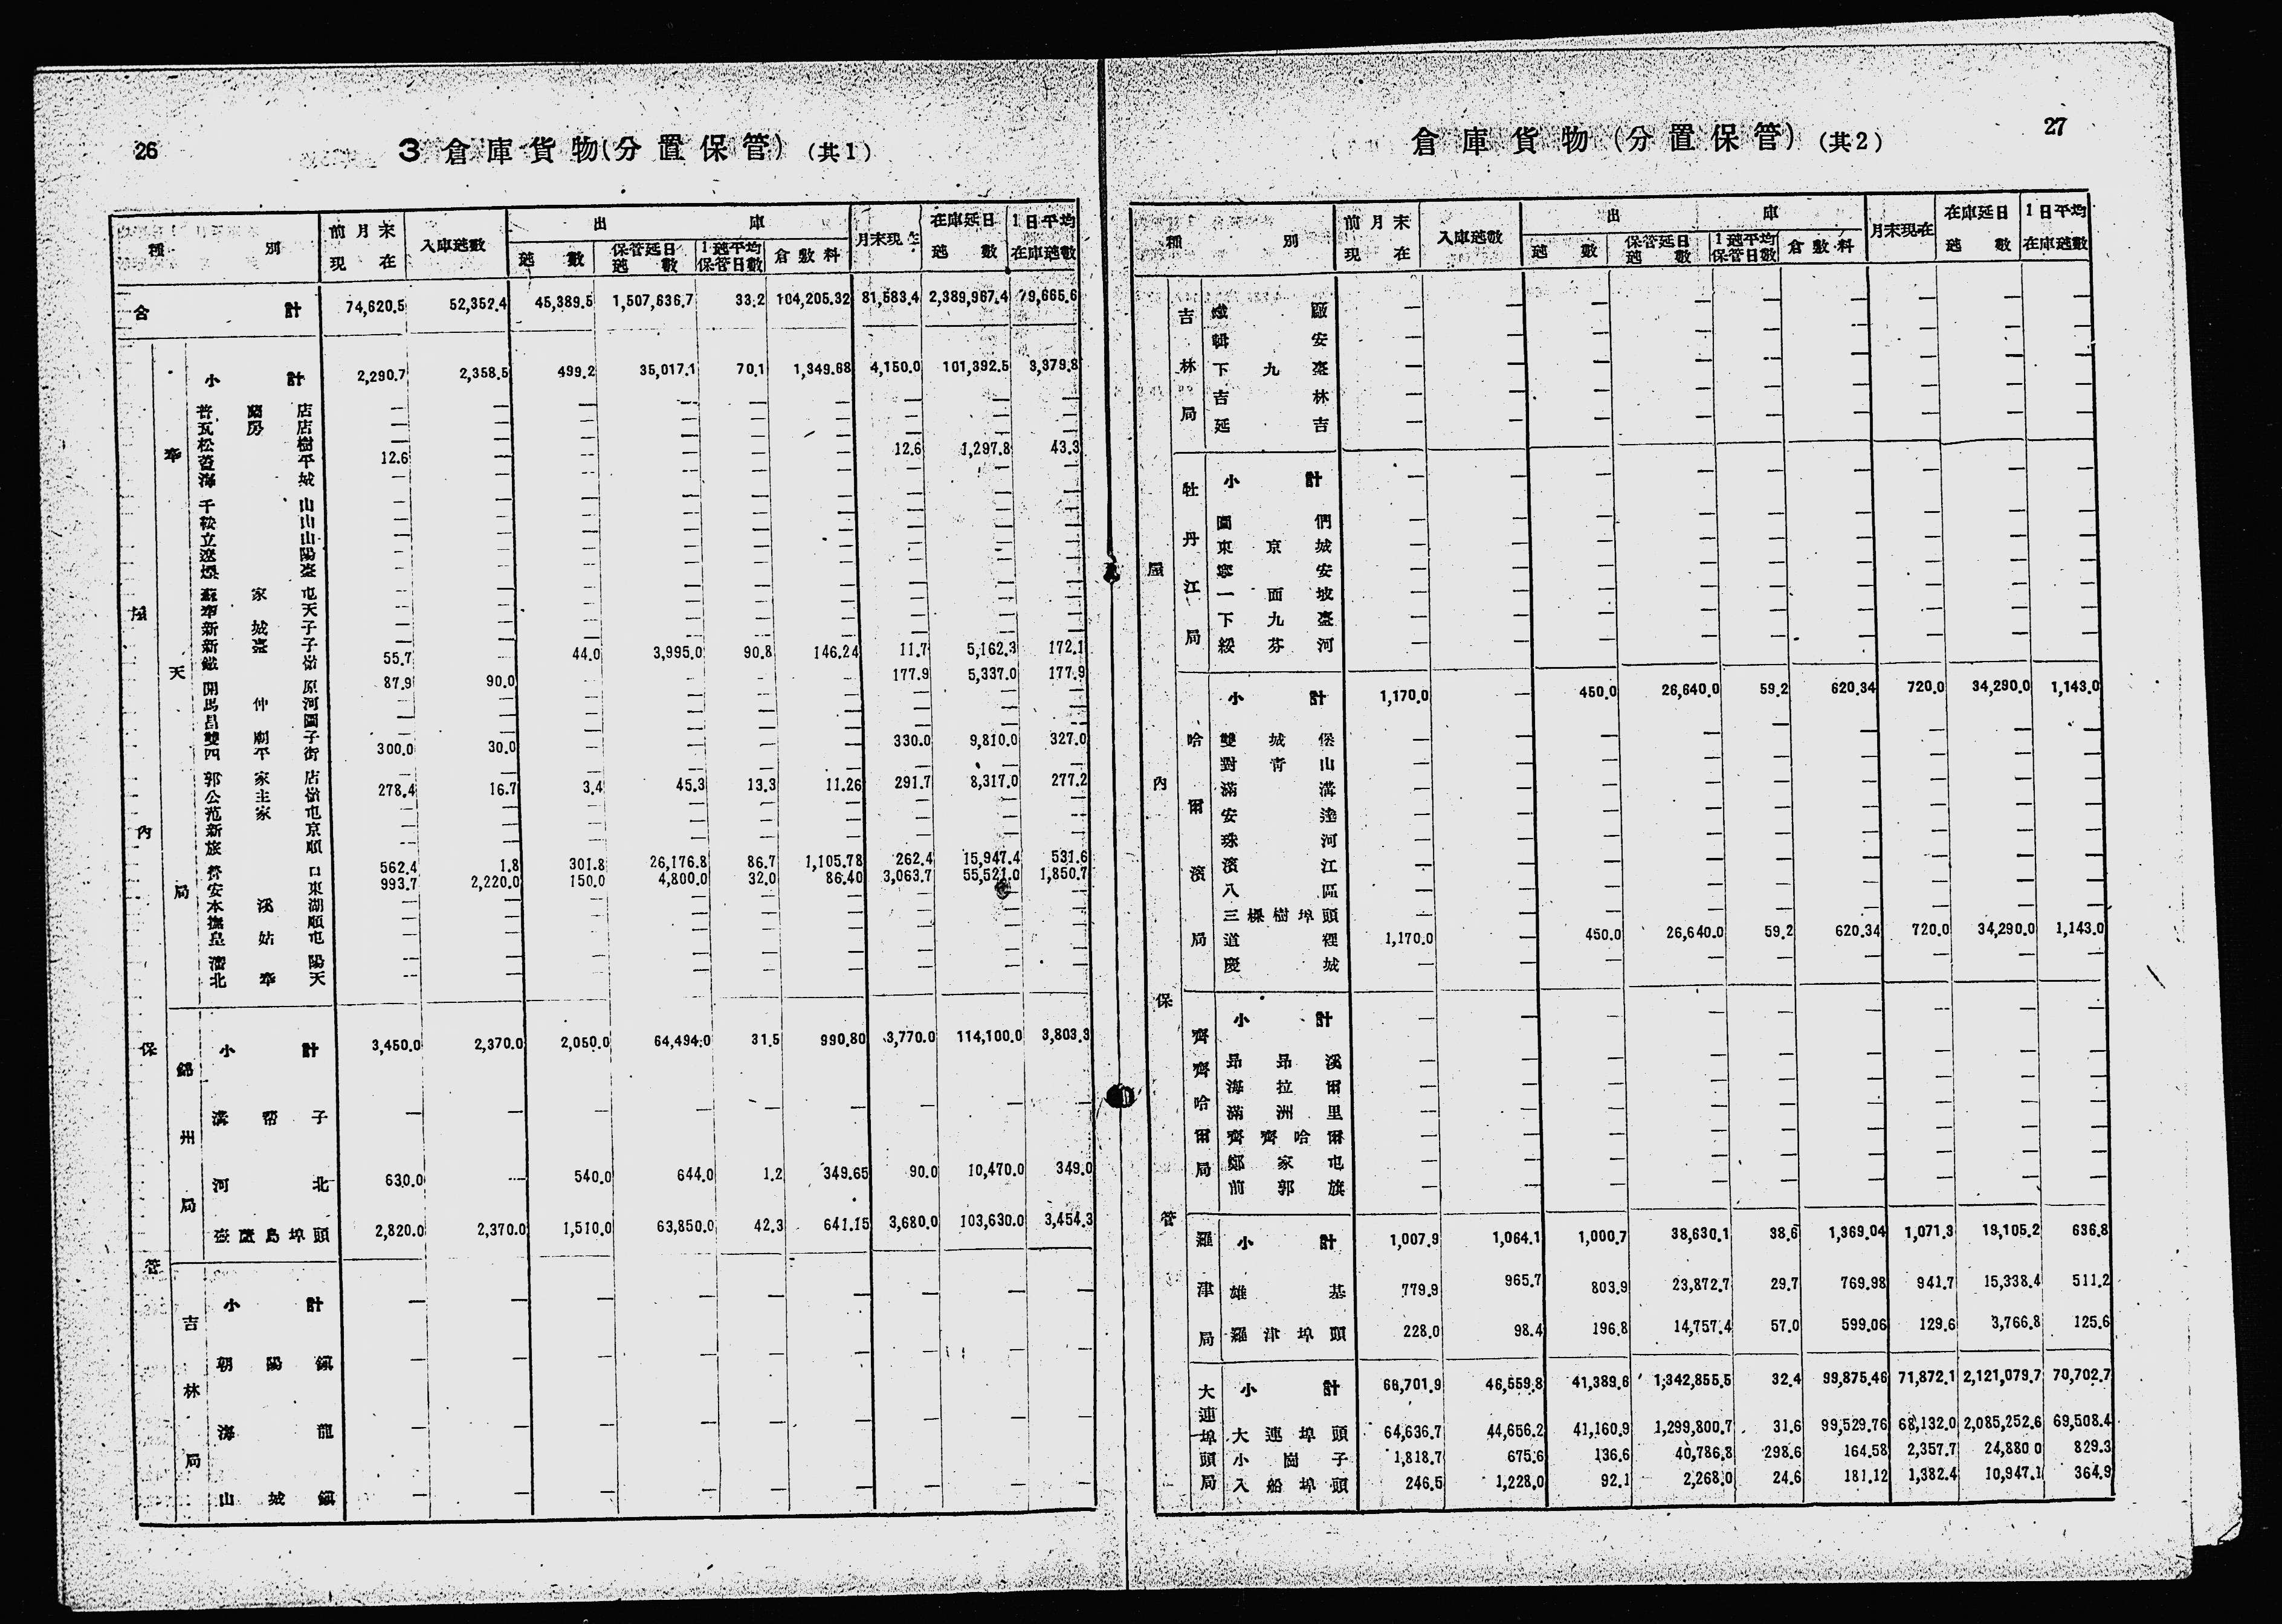 26
3 倉庫貨物(分置保管) (其1)
種別 前月末現在 入庫瓲數 出庫 月末現在 在庫延日瓲數 1日平均在庫瓲數
瓲數 保管延日瓲數 1瓲平均保管日數 倉敷料
合計 74,620.5 52,352.4 45,389.5 1,507,636.7 33.2 104,205.32 81,583.4 2,389,967.4 79,665.6
局內保管
奉天局
小計 2,290.7 2,358.5 499.2 35,017.1 70.1 1,349.68 4,150.0 101,392.5 3,379.8
普蘭店 — — — — — — — — —
瓦房店 — — — — — — — — —
松樹 — — — — — — — — —
蓋平 12.6 — — — — — 12.6 1,297.8 43.3
海城 — — — — — — — — —
千山 — — — — — — — — —
鞍山 — — — — — — — — —
立山 — — — — — — — — —
遼陽 — — — — — — — — —
煙臺 — — — — — — — — —
蘇家屯 — — — — — — — — —
奉天 — — — — — — — — —
新城子 — — — — — — — — —
新臺子 — — — — — — — — —
鐵嶺 55.7 — 44.0 3,995.0 90.8 146.24 11.7 5,162.3 172.1
開原 87.9 90.0 — — — — 177.9 5,337.0 177.9
馬仲河 — — — — — — — — —
昌圖 — — — — — — — — —
雙廟子 — — — — — — — — —
四平街 300.0 30.0 — — — — 330.0 9,810.0 327.0
郭家店 — — — — — — — — —
公主嶺 278.4 16.7 3.4 45.3 13.3 11.26 291.7 8,317.0 277.2
范家屯 — — — — — — — — —
新京 — — — — — — — — —
旅順 — — — — — — — — —
營口 562.4 1.8 301.8 26,176.8 86.7 1,105.78 262.4 15,947.4 531.6
安東 993.7 2,220.0 150.0 4,800.0 32.0 86.40 3,063.7 55,521.0 1,850.7
本溪湖 — — — — — — — — —
撫順 — — — — — — — — —
皇姑屯 — — — — — — — — —
瀋陽 — — — — — — — — —
北奉天 — — — — — — — — —
錦州局
小計 3,450.0 2,370.0 2,050.0 64,494.0 31.5 990.80 3,770.0 114,100.0 3,803.3
溝幇子 — — — — — — — — —
河北 630.0 — 540.0 644.0 1.2 349.65 90.0 10,470.0 349.0
壺蘆島埠頭 2,820.0 2,370.0 1,510.0 63,850.0 42.3 641.15 3,680.0 103,630.0 3,454.3
吉林局
小計 — — — — — — — — —
朝陽鎭 — — — — — — — — —
海龍 — — — — — — — — —
山城鎭 — — — — — — — — —
27
倉庫貨物(分置保管) (其2)
種別 前月末現在 入庫瓲數 出庫 月末現在 在庫延日瓲數 1日平均在庫瓲數
瓲數 保管延日瓲數 1瓲平均保管日數 倉敷料
局內保管
吉林局
廠 — — — — — — — — —
輯安 — — — — — — — — —
下九臺 — — — — — — — — —
吉林 — — — — — — — — —
延吉 — — — — — — — — —
牡丹江局
小計 — — — — — — — — —
圖們 — — — — — — — — —
東京城 — — — — — — — — —
寧安 — — — — — — — — —
一面坡 — — — — — — — — —
下九臺 — — — — — — — — —
綏芬河 — — — — — — — — —
哈爾濱局
小計 1,170.0 — 450.0 26,640.0 59.2 620.34 720.0 34,290.0 1,143.0
雙城堡 — — — — — — — — —
對靑山 — — — — — — — — —
滿溝 — — — — — — — — —
安達 — — — — — — — — —
珠河 — — — — — — — — —
濱江 — — — — — — — — —
八區 — — — — — — — — —
三棵樹埠頭 — — — — — — — — —
道裡 1,170.0 — 450.0 26,640.0 59.2 620.34 720.0 34,290.0 1,143.0
慶城 — — — — — — — — —
齊齊哈爾局
小計 — — — — — — — — —
昂昂溪 — — — — — — — — —
海拉爾 — — — — — — — — —
滿洲里 — — — — — — — — —
齊齊哈爾 — — — — — — — — —
鄭家屯 — — — — — — — — —
前郭旗 — — — — — — — — —
羅津局
小計 1,007.9 1,064.1 1,000.7 38,630.1 38.6 1,369.04 1,071.3 19,105.2 636.8
雄基 779.9 965.7 803.9 23,872.7 29.7 769.98 941.7 15,338.4 511.2
羅津埠頭 228.0 98.4 196.8 14,757.4 57.0 599.06 129.6 3,766.8 125.6
大連埠頭局
小計 66,701.9 46,559.8 41,389.6 1,342,855.5 32.4 99,875.46 71,872.1 2,121,079.7 70,702.7
大連埠頭 64,636.7 44,656.2 41,160.9 1,299,800.7 31.6 99,529.76 68,132.0 2,085,252.6 69,508.4
小崗子 1,818.7 675.6 136.6 40,786.8 298.6 164.58 2,357.7 24,880 0 829.3
入船埠頭 246.5 1,228.0 92.1 2,268.0 24.6 181.12 1,382.4 10,947.1 364.9